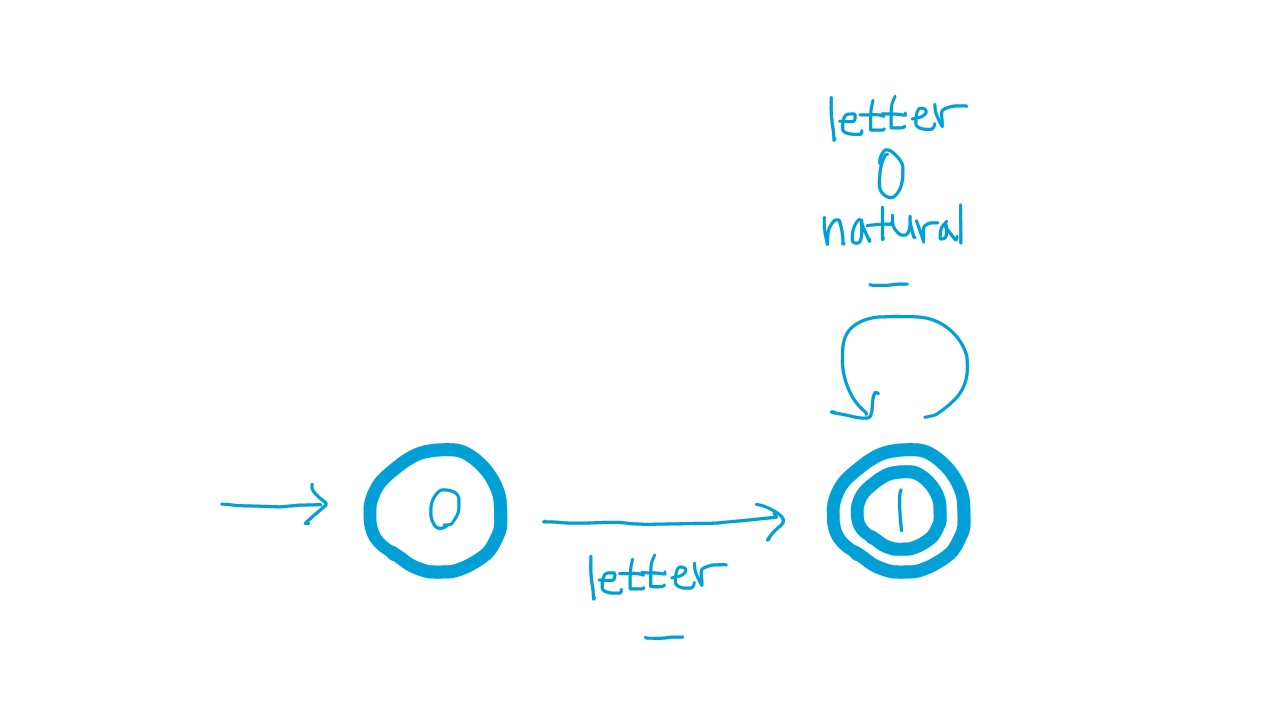 letter
0
natural
_
0
1
letter
_